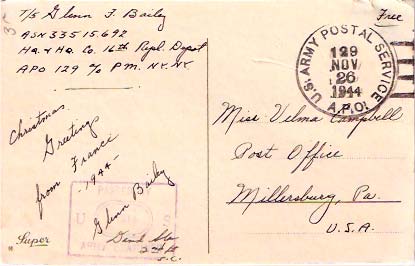 T/5 Glenn F. Bailey
ASN 33515692
Hq. & Hq. Co. 16th Repl. Depot
APO 129 c/o P.M. N.Y. N.Y.
Free
U.S. ARMY POSTAL SERVICE
129
NOV
26
1944
A.P.O.
Christmas
Greetings
from France
1944
Glenn Bailey
PASSED
U S
ARMY
2nd Lt
S.C.
Super
Miss Velma Campbell
Post Office
Millersburg, Pa.
U.S.A.